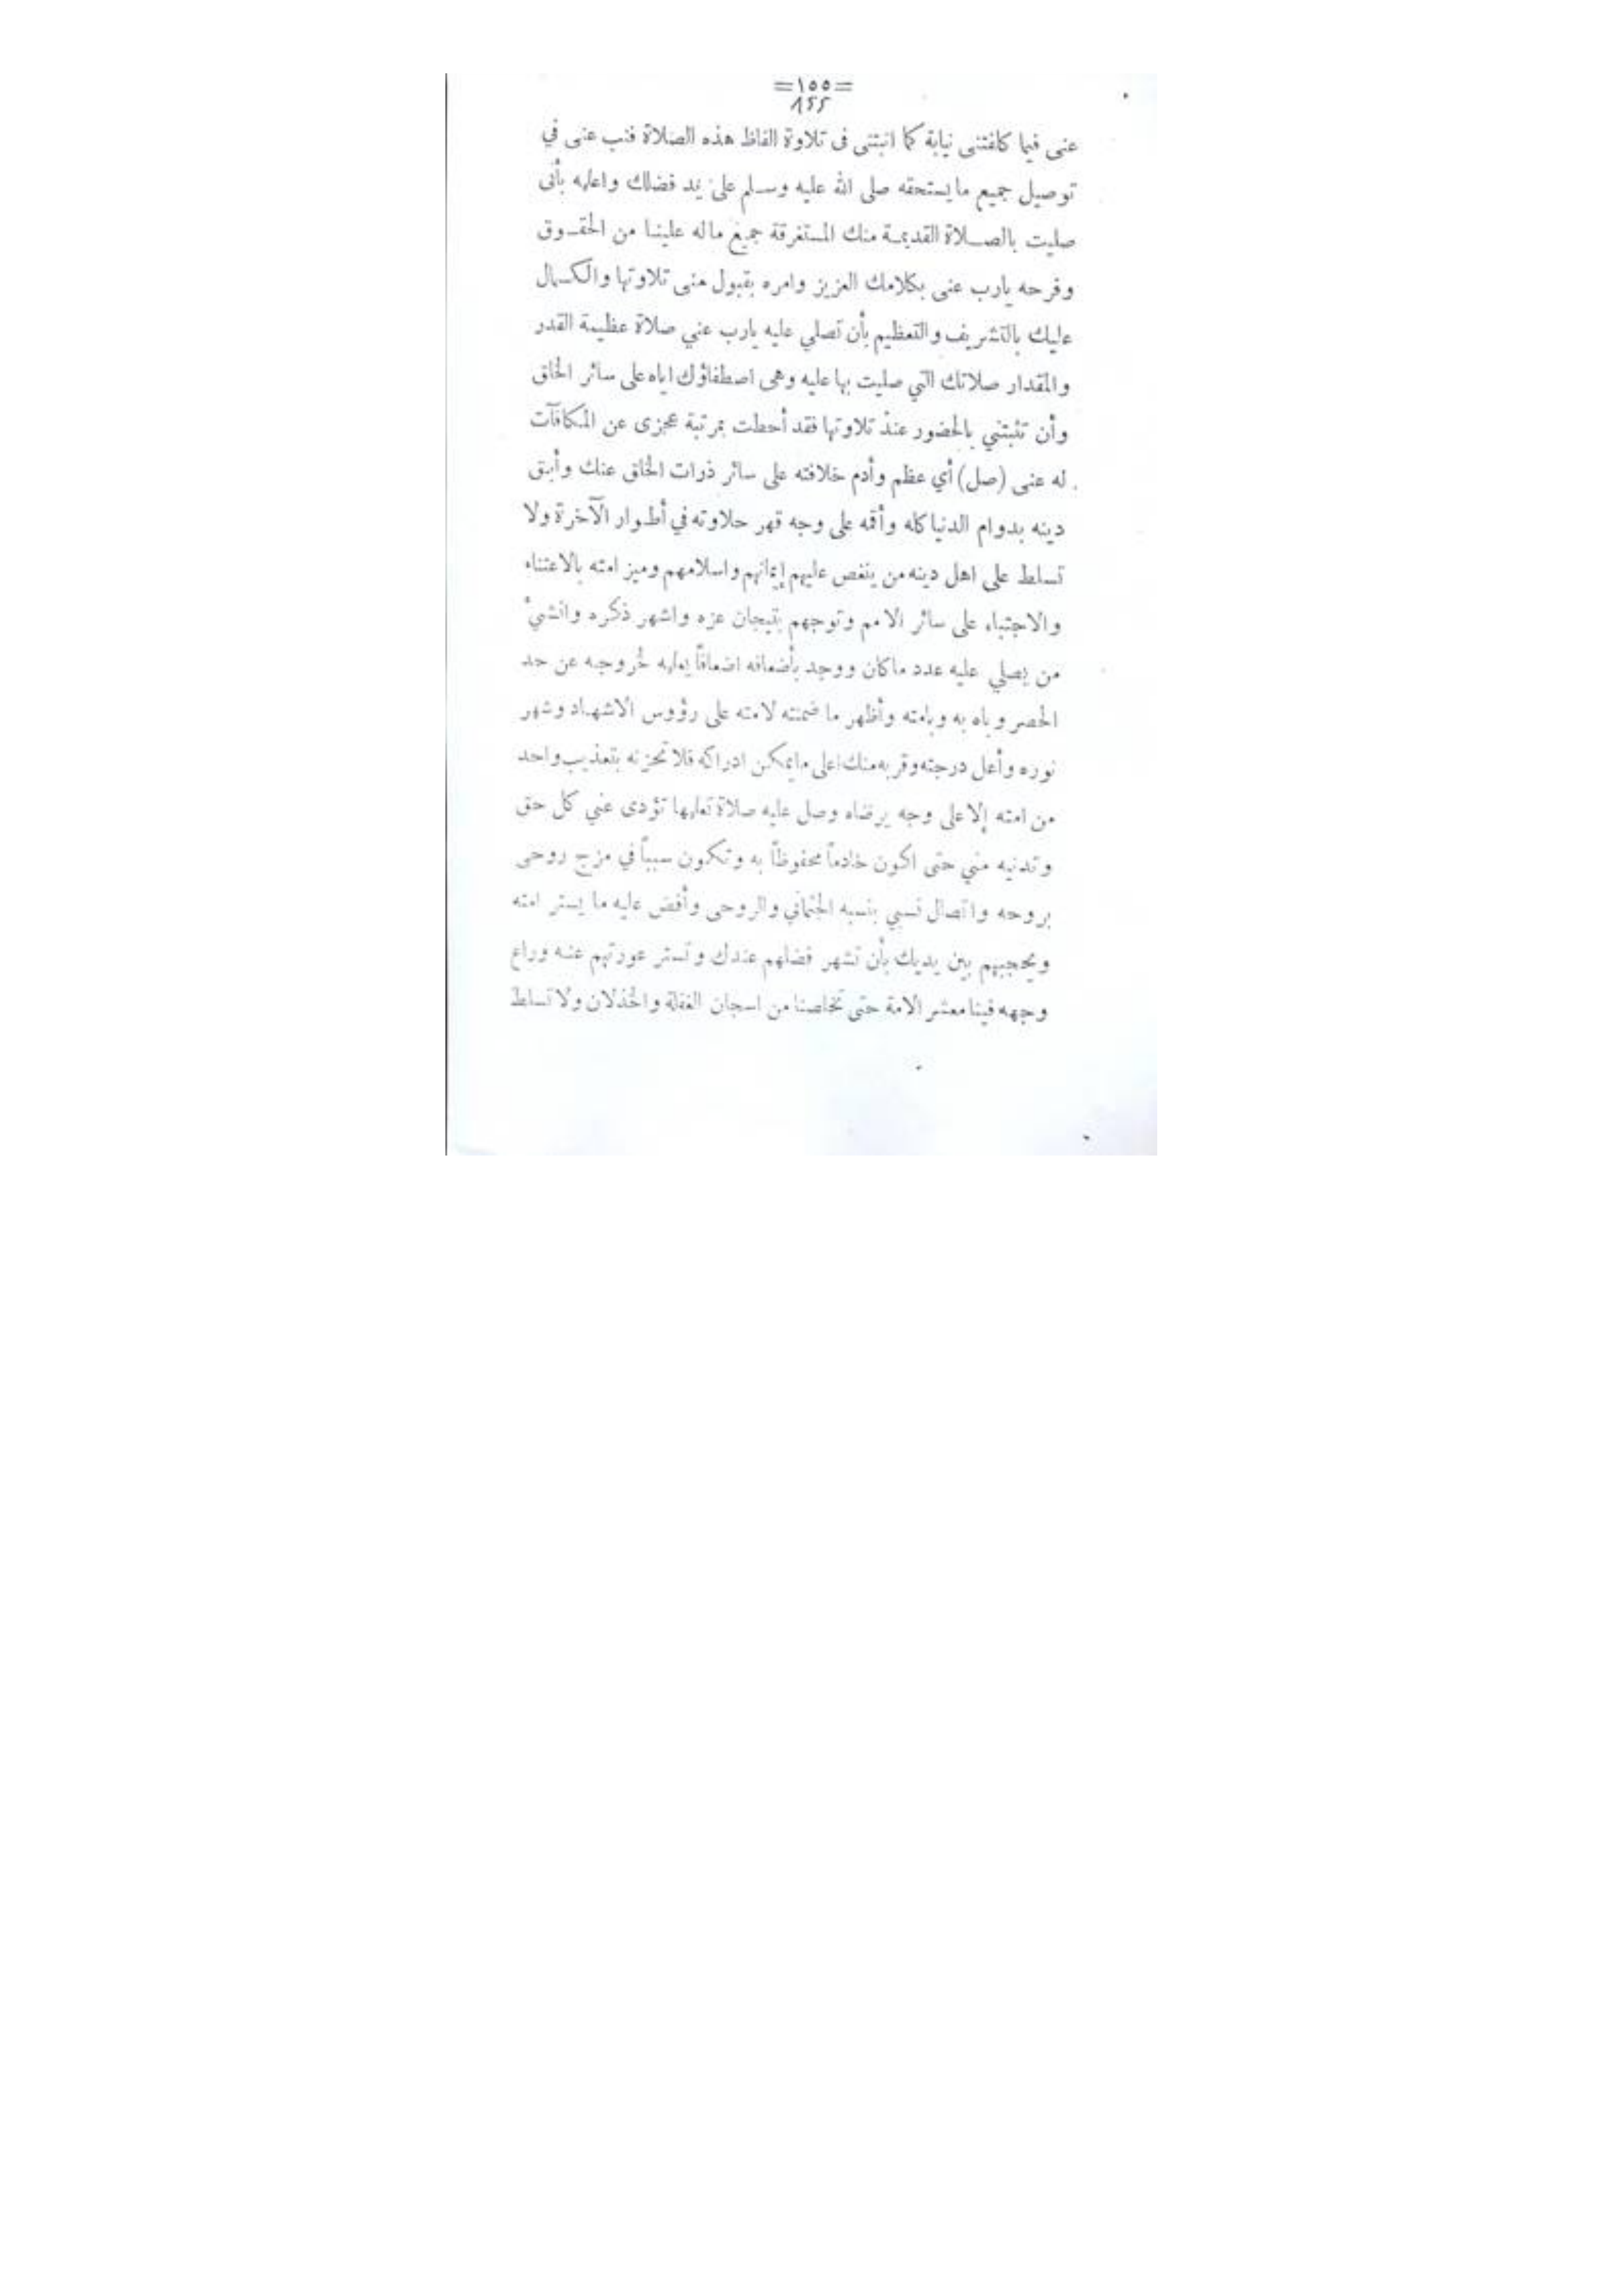 =١٥٥=
١٤٤
عنى فيما كلفتنى نيابة كما انبتنى فى تلاوة الفاظ هذه الصلاة فنب عنى في
توصيل جميع مايستحقه صلى الله عليه وسلم على يد فضلك واعلمه بأنى
صليت بالصلاة القديمة منك المستغرقة جميع ماله علينا من الحقوق
وفرحه يارب عنى بكلامك العزيز وامره بقبول منى تلاوتها والكمال
عليك بالتشريف والتعظيم بأن تصلي عليه يارب عني صلاة عظيمة القدر
والمقدار صلاتك التي صليت بها عليه وهى اصطفاؤك اياه على سائر الخلق
وأن تثبتني بالحضور عند تلاوتها فقد أحطت بمرتبة عجزى عن المكافآت
له عنى (صل) أي عظم وأدم خلافته على سائر ذرات الخلق عنك وأبق
دينه بدوام الدنيا كله وأقمه على وجه قهر حلاوته في أطوار الآخرة ولا
تسلط على اهل دينه من ينغص عليهم إيمانهم واسلامهم وميز امته بالاعتناء
والاجتباء على سائر الامم وتوجهم بتيجان عزه واشهر ذكره وانشئ
من يصلي عليه عدد ماكان ووجد بأضعافه اضعافاً يعليه لخروجه عن حد
الحصر وباه به وبامته وأظهر ما ضمنته لامته على رؤوس الاشهاد وشهر
نوره وأعل درجته وقربه منك اعلى مايمكن ادراكه فلا تحزنه بتعذيب واحد
من امته إلا على وجه يرضاه وصل عليه صلاة تعليها تؤدى عني كل حق
وتدنيه مني حتى اكون خادماً محفوظاً به وتكون سبباً في مزج روحى
بروحه واتصال نسبي بنسبه الجثماني والروحى وأفض عليه ما يستر امته
ويحجبهم بين يديك بأن تشهر فضلهم عندك وتستر عورتهم عنه وراع
وجهه فينا معشر الامة حتى تخلصنا من اسجان الغفلة والخذلان ولا تسلط